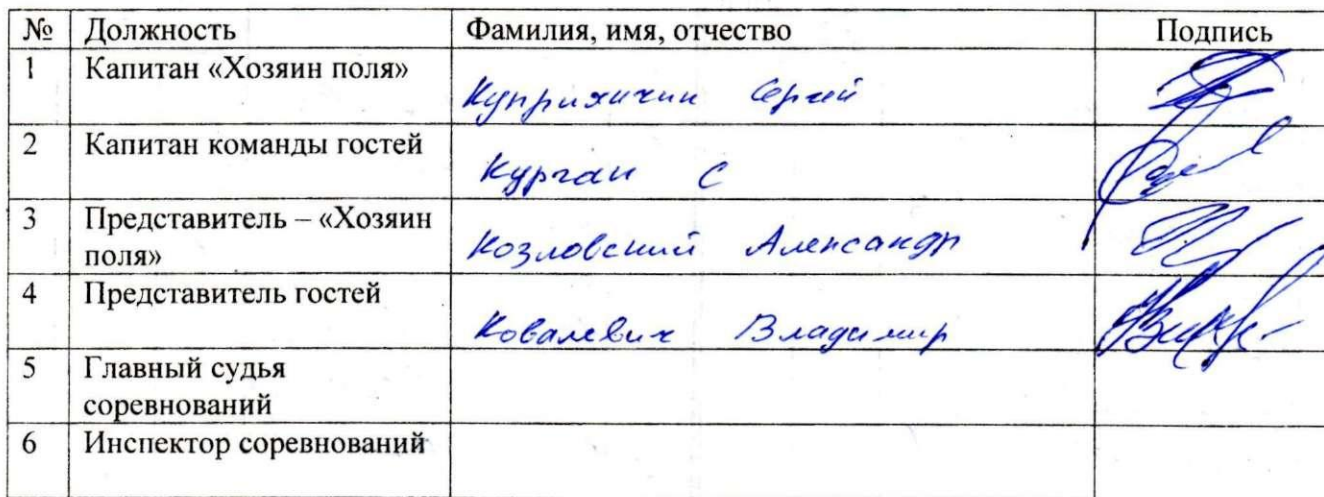 № Должность Фамилия, имя, отчество Подпись
1 Капитан «Хозяин поля» Куприянчик Сергей
2 Капитан команды гостей Курган С
3 Представитель – «Хозяин
поля» Козловский Александр
4 Представитель гостей Ковалевич Владимир
5 Главный судья
соревнований
6 Инспектор соревнований